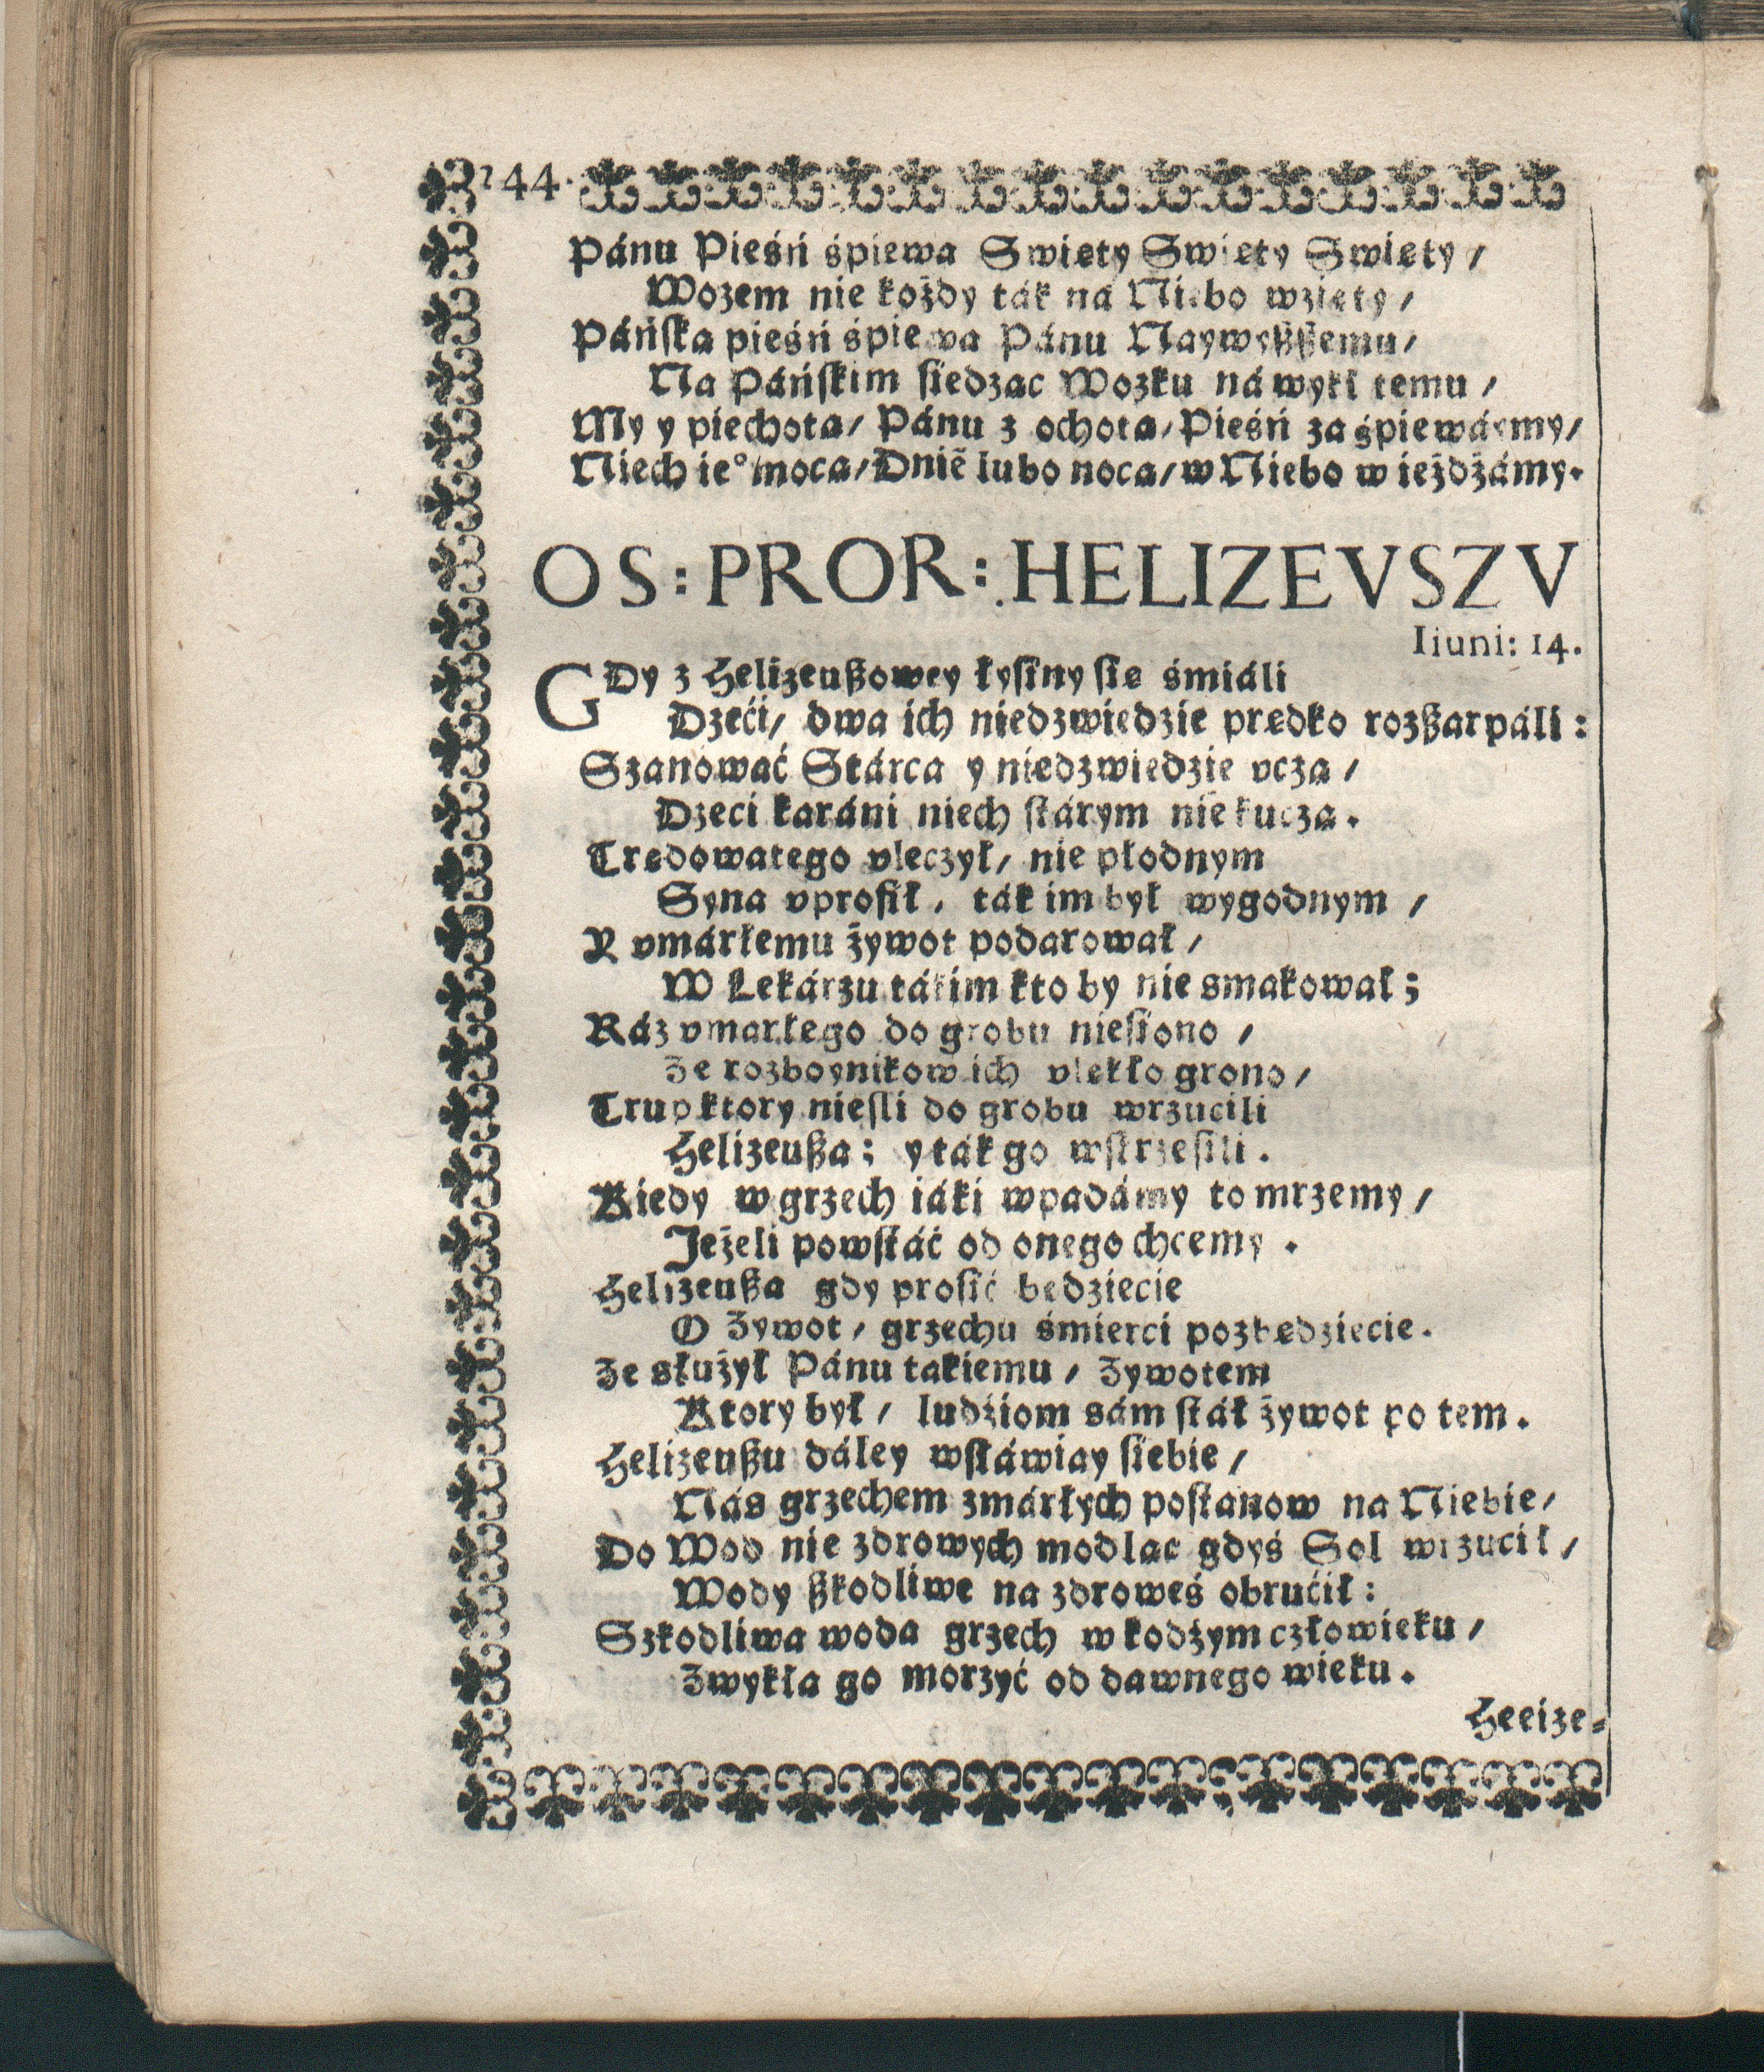 244.
Pánu Pieśń śpiewa Swięty Swięty Swięty /
Wozem nie kożdy ták na Niebo wzięty /
Páńſka pieśń śpiewa Pánu Naywyßßemu /
Na Páńſkim ſiedząc Wozku náwykł temu /
My y piechotą / Pánu z ochotą / Pieśń zaśpiewáymy /
Niech ie° mocą / Dniē lubo nocą / w Niebo wieżdżámy.
OS: PROR: HELIZEVSZV
Iiuni: 14.
GDy z Helizeußowey łyſiny ſię śmiáli
Dzeći / dwa ich niedzwiedzie prędko rozßarpáli :
Szanować Stárca y niedzwiedzie vczą /
Dzeci karáni niech ſtárym nie kuczą.
Trędowatego vleczył / nie płodnym
Syna vproſił , ták im był wygodnym /
Y vmárłemu żywot podarował /
W Lekárzu tákim kto by nie smakował ;
Ráz vmarłego do grobu nieſiono /
Ze rozboynikow ich vlękło grono /
Trup ktory nieſli do grobu wrzucili
Helizeußa ; y ták go wſkrzeſili .
Kiedy w grzech iáki wpadámy to mrzemy /
Jeżeli powſtáć od onego chcemy .
Helizeußa gdy proſić będziecie
O Zywot / grzechu śmierci pozbędziecie.
Ze służył Pánu takiemu / Zywotem
Ktory był / ludźiom sám ſtáł żywot po tem.
Helizeußu dáley wſłáwiay ſiebie /
Nás grzechem zmárłych poſtanow na Niebie /
Do Wod nie zdrowych modląc gdyś Sol wrzucił /
Wody ßkodliwe na zdroweś obrućił :
Szkodliwa woda grzech w kodżym człowieku /
Zwykła go morzyć od dawnego wieku.
Heeize-